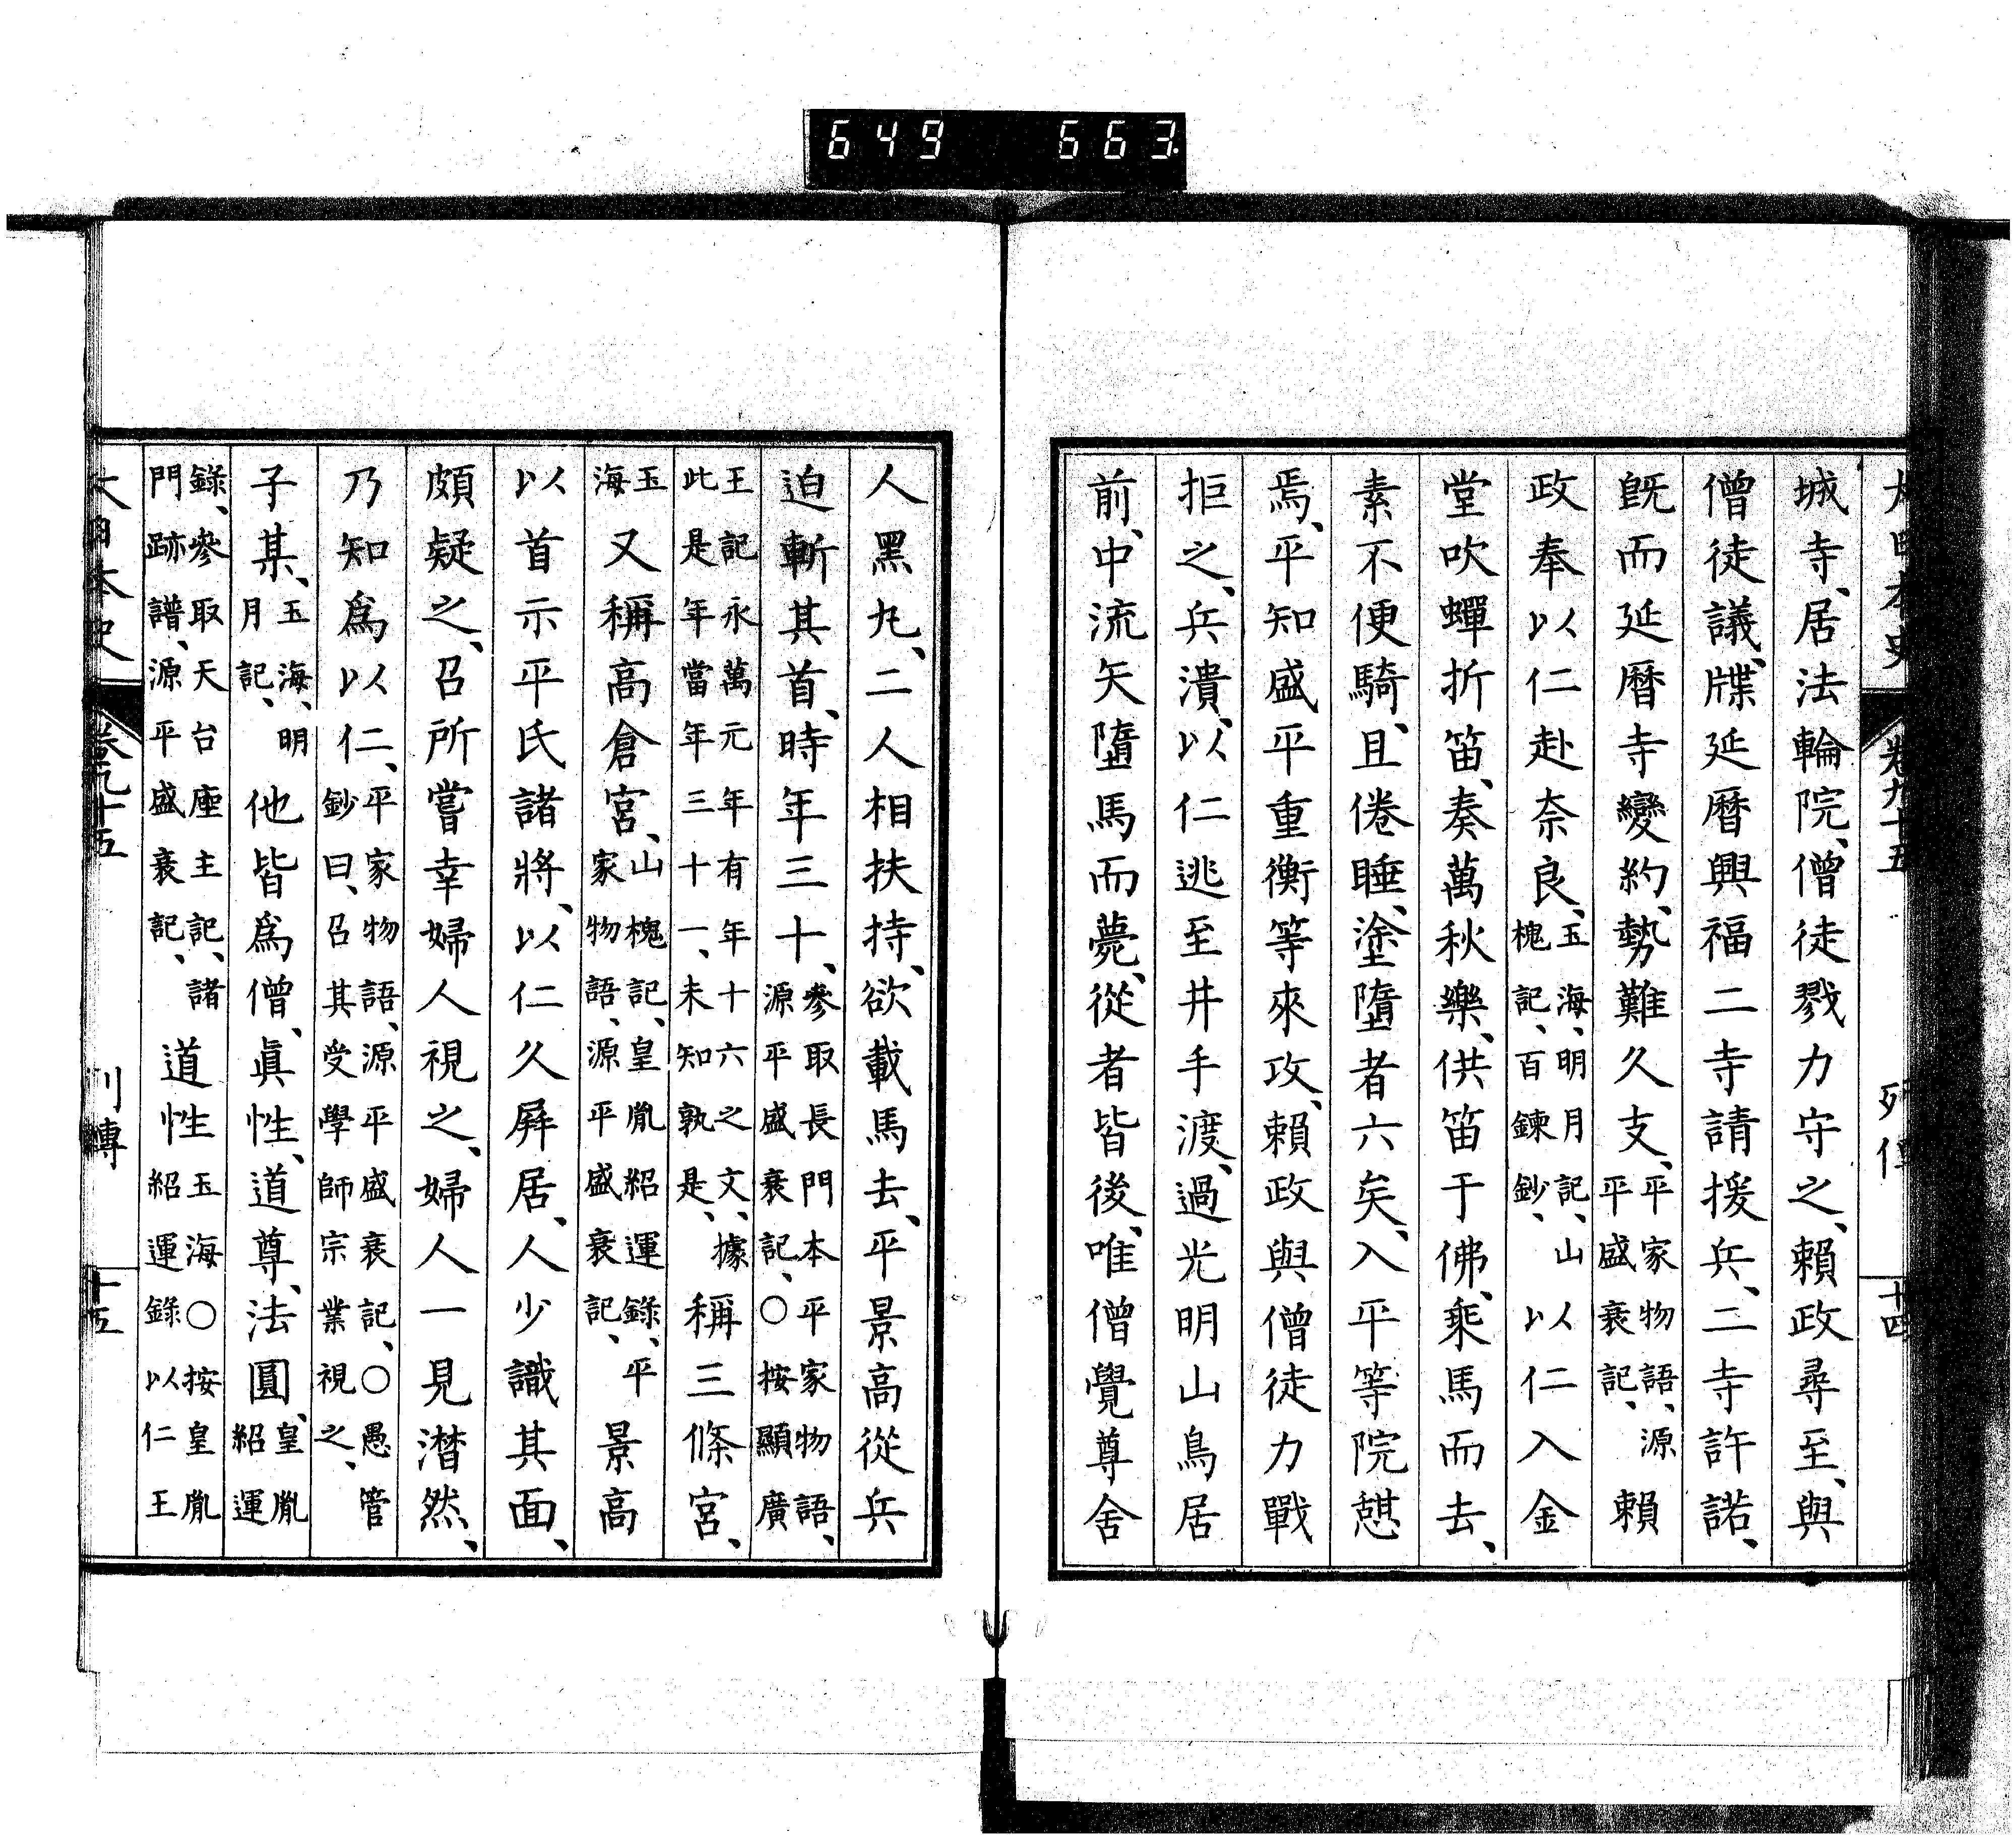 649 663.
大日本史 卷九十五 列傳 十四
城寺、居法輪院、僧徒戮力守之、賴政尋至、與
僧徒議、牒延曆興福二寺請援兵、二寺許諾、
旣而延曆寺變約、勢難久支、平家物語、源平盛衰記、賴
政奉以仁赴奈良、玉海、明月記、山槐記、百鍊鈔、以仁入金
堂吹蟬折笛、奏萬秋樂、供笛于佛、乘馬而去、
素不便騎、且倦睡、塗墮者六矣、入平等院憇
焉、平知盛平重衡等來攻、賴政與僧徒力戰
拒之、兵潰、以仁逃至井手渡、過光明山鳥居
前、中流矢墮馬而薨、從者皆後、唯僧覺尊舍
人黑丸、二人相扶持、欲載馬去、平景高從兵
迫斬其首、時年三十、參取長門本平家物語、源平盛衰記、○按顯廣
王記永萬元年有年十六之文、據此是年當年三十一、未知孰是、稱三條宮、
玉海又稱高倉宮、山槐記、皇胤紹運錄、平家物語、源平盛衰記、景高
以首示平氏諸將、以仁久屛居、人少識其面、
頗疑之、召所嘗幸婦人視之、婦人一見潸然、
乃知爲以仁、平家物語、源平盛衰記、○愚管鈔曰、召其受學師宗業視之、
子某、玉海、明月記、他皆爲僧、眞性、道尊、法圓、皇胤紹運
錄、參取天台座主記、諸門跡譜、源平盛衰記、道性玉海○按皇胤紹運錄以仁王
大日本史 卷九十五 列傳 十五